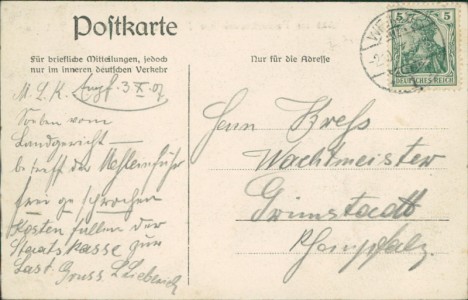 Postkarte
Für briefliche Mitteilungen, jedoch
nur im inneren deutschen Verkehr
Nur für die Adresse
5 5
DEUTSCHES REICH
M. L. K. Empf. 3 X. 07
Soeben vom
Landgericht
betreff der
frei gesprochen
Kosten fallen der
Staatskasse zur
Last. Gruss
Herrn Kress
Wachtmeister
Grünstadt
Rheinpfalz